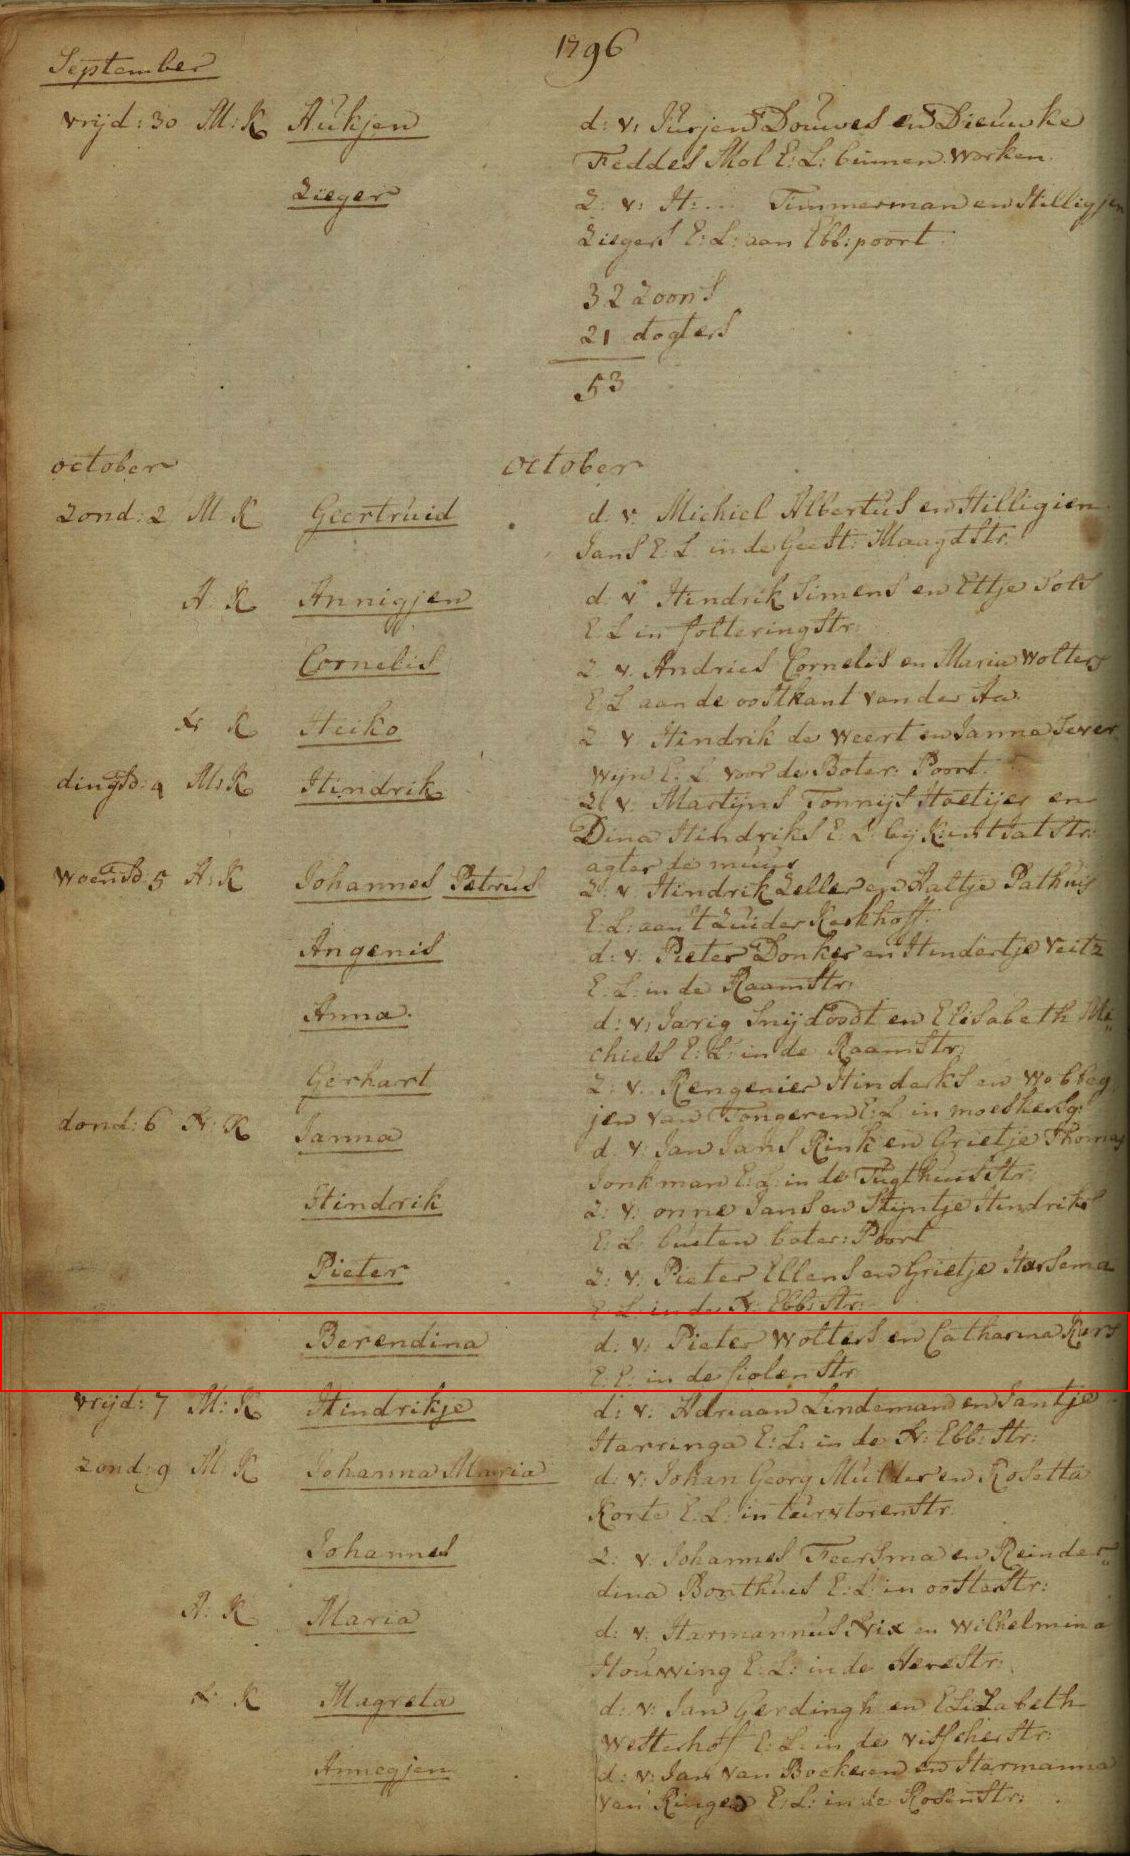 1796
September
vrijd: 30 M: K Aukjen d: v: Jurjen Douwes en Dieuwke
Feddes Mol E: L: binnen worken.
Zieger Z: v: H: ... Timmerman en Hilligjen
Ziegers E: L: aan Ebb: poort.
32 Zoons
21 dogters
53
october october
Zond: 2 M K Geertruid d. v. Michiel Albertus en Hilligien
Jans E. L. in de Geest: Maagdstr:
A. K Annigjen d v Hindrik Simens en Ettje
E L in folteringstr:
Cornelis Z v. Andries Cornelis en Maria Wolters
E L aan de oostkant van der Aa.
N K Heiko Z v Hindrik de Weert en Janna Sever
wijn E. L. voor de Boter: Poort.
dingsd: 4 M: K Hindrik Z v. Martijns Tonnijs Hoetijer en
Dina Hindriks E: L: bij Kuntjatstr:
agter de muur
woensd. 5 A: K Johannes Petrus Z. v. Hindrik Zeller en Aaltje Pathuis
E: L: aan t Zuider Kerkhoff.
Angenis d: v: Pieter Donker en Hindertje Veitz
E. L. in de Raamstr:
Anna. d: v: Jarig Snijdoodt en Elisabeth Mi
chiels E: L: in de Raamstr:
Gerhart Z: v: Rengenier Hinderks en Wobbeg
jen van Tongeren E: L in moeskersg:
dond: 6 N: K Janna d. v. Jan Jans Rink en Grietje Thomas
Jonkman E: L: in de Tugthuisstr:
Hindrik Z: v: onne Jans en Stijntje Hindriks
E: L: buiten boter: Poort
Pieter Z: v: Pieter Ellens en Grietje Harsema
E: L: in de N: Ebb: str:
Berendina d: v: Pieter Wolters en Catharina Kurs
E: L: in de Violenstr
vrijd: 7 M: K Hindrikje d: v: Adriaan Lindeman en Jantje
Harringa E: L: in de N: Ebb: str:
Zond: 9 M K Johanna Maria d: v: Johan Georg Mulder en Rosetta
Korte E. L: in turvtorenstr.
Johannes Z: v: Johannes Feersma en Reinder
dina Bonthuis E: L: in oosterstr:
A: K Maria d: v: Harmannus Nix en Wilhelmina
Houwing E: L: in de Herestr:
N K Magreta d: v: Jan Gerdingh en Elizabeth
Westerhof E: L: in de Visscherstr:
Annegjen d: v: Jan van Bockeren en Harmanna
van Ringen E: L: in de Rosenstr: